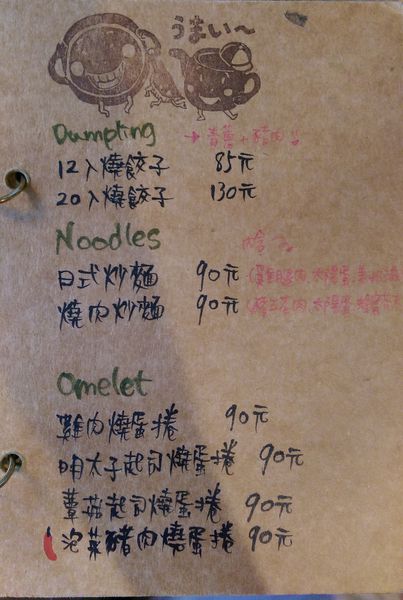 うまい～
Dumpling → 青蔥+豬肉
12入燒餃子 85元
20入燒餃子 130元
Noodles 內含
日式炒麵 90元
燒肉炒麵 90元
Omelet
雞肉燒蛋捲 90元
明太子起司燒蛋捲 90元
蕈菇起司燒蛋捲 90元
泡菜豬肉燒蛋捲 90元